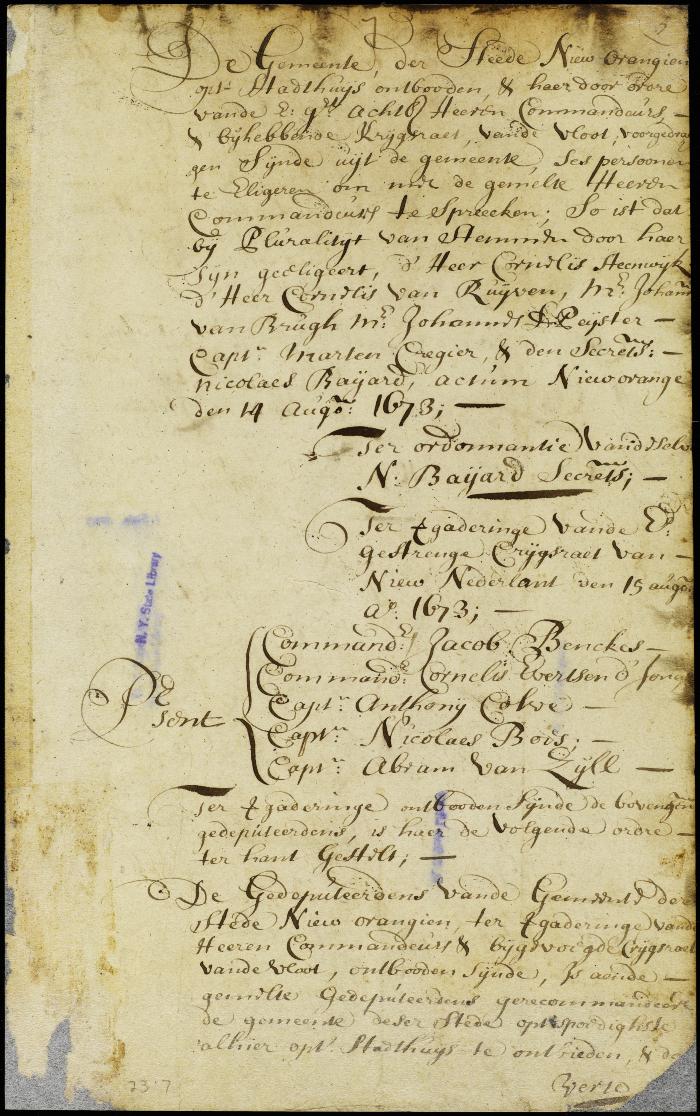 De Gemeente, der Steede Nieuw orangien
opt Stadthuys ontbooden, & haer door ordre
vande E: Achtb Heeren Commandeurs, —
& byhebbende Krygsraet, vande vloot, voorgedra
gen Synde uijt de gemeente, Ses persoonen
te Eligeren om met de gemelte Heeren
Commandeurs te Spreecken; So ist dat
by Pluralityt van Stemmen door haer
Syn geëligeert, d' Heer Cornelis Steenwyk
d' Heer Cornelis van Ruyven, Mr: Johan
van Brugh Mr: Johannes de Peyster —
Captn: Marten Cregier, & den Secrets: —
Nicolaes Bayard, actum Nieworange
den 14 Augo: 1673; —
Ter ordonnantie vande selve
N: Bayard Secrets; —
Ter Vgaderinge vande Ed:
Gestrenge Crygsraet van —
Niew Nederlant den 15 augo
Ao: 1673; —
Psent
Command:r Jacob Benckes —
Command:r Cornelis Evertsen d' Jong
Captn: Anthony Colve —
Captn: Nicolaes Bois; —
Captn: Abram van Zyll —
Ter Vgaderinge ontbooden Synde de boven
gedeputeerdens, is haer de volgende ordre —
ter hant Gestelt; —
De Gedeputeerdens vande Gemeente der
Stede Niew orangien, ter Vgaderinge vande
Heeren Commandeurs & bygevoegde Crygsraet
vande Vloot, ontbooden Synde, Is aende —
gemelte Gedeputeerdens gerecommandeert
de gemeente deser Stede opt spoedighste
alhier opt Stadthuys te ontbieden, & de
Verte
N. Y. State Library